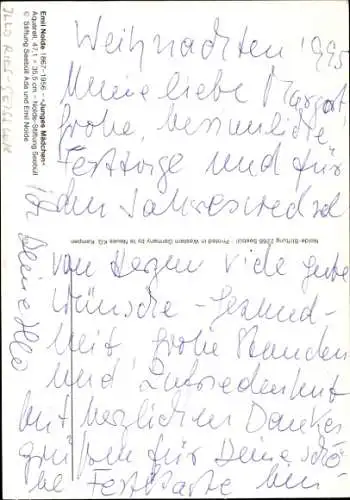 Weihnachten 1995
Meine liebe Margot
frohe, besinnliche
Festtage und für
den Jahreswechsel
von Herzen viele gute
Wünsche - Gesund-
heit, frohe Stunden
und Zufriedenheit
mit herzlichen Dankes
grüßen für Deine schö
ne Festkarte bin
ich Deine Illo
Emil Nolde 1867–1956 – »Junges Mädchen«
Aquarell, 47,1 × 35,5 cm – Nolde-Stiftung Seebüll
© Stiftung Seebüll Ada und Emil Nolde
Nolde-Stiftung 2268 Seebüll · Printed in Western Germany by te Neues KG, Kempen